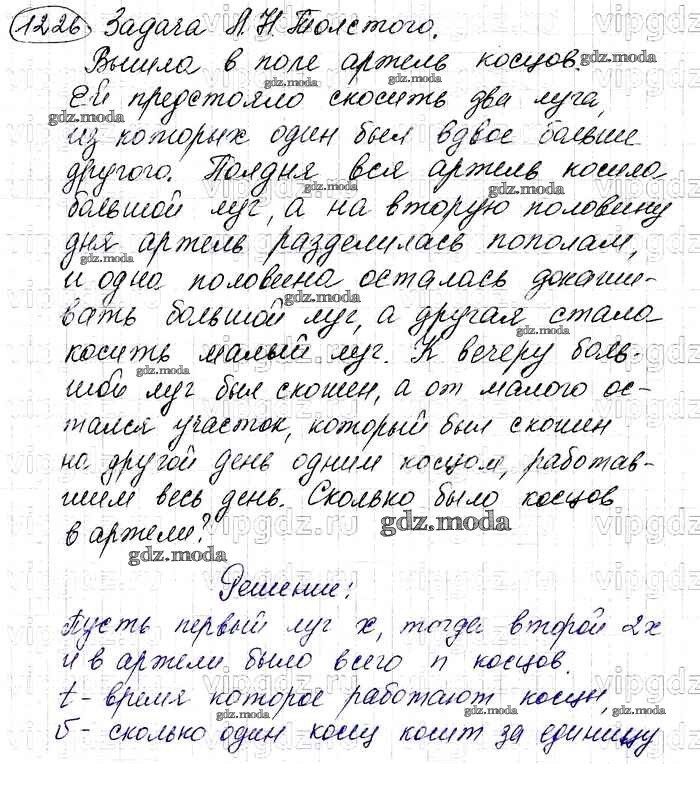 1226 Задача Л.Н.Толстого.
Вышла в поле артель косцов.
Ей предстояло скосить два луга,
из которых один был вдвое больше
другого. Полдня вся артель косила
большой луг, а на вторую половину
дня артель разделилась пополам,
и одна половина осталась докаши-
вать большой луг, а другая стала
косить малый луг. К вечеру боль-
шой луг был скошен, а от малого ос-
тался участок, который был скошен
на другой день одним косцом, работав-
шим весь день. Сколько было косцов
в артели?
Решение:
Пусть первый луг x, тогда второй 2x
и в артели было всего n косцов.
t - время которое работают косцы,
б - сколько один косец косит за единицу